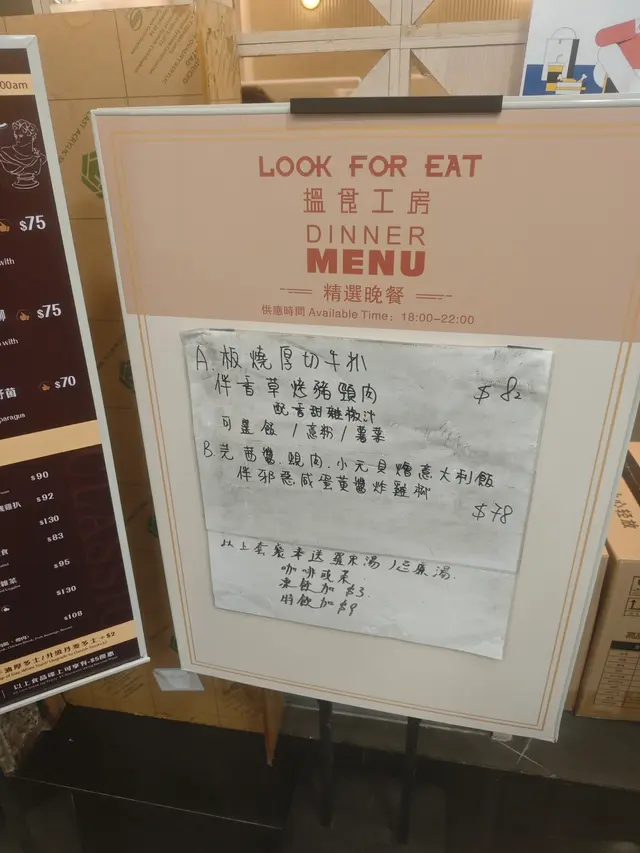 00am
$75
with
$75
with
$70
paragus
$90
$92
$130
$83
$95
$130
$108
以上食品碟上可享有-$5優惠
LOOK FOR EAT
搵食工房
DINNER
MENU
精選晚餐
供應時間 Available Time: 18:00-22:00
A. 板燒厚切牛扒
伴香草烤豬頸肉
$82
配香甜雜椒汁
可選飯 / 意粉 / 薯菜
B. 芫茜醬.蜆肉.小元貝燴意大利飯
伴邪惡咸蛋黃醬炸雞柳
$78
以上套餐來送羅宋湯 / 忌廉湯.
咖啡或茶
凍飲加 $3
特飲加 $9